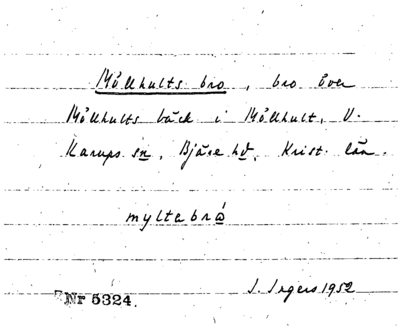 Möllhults bro, bro över
Möllhults bäck i Möllhult, V.
Karups sn, Bjäre hd, Krist. län.
myltabró
Nr 5324.
I. Ingers 1952